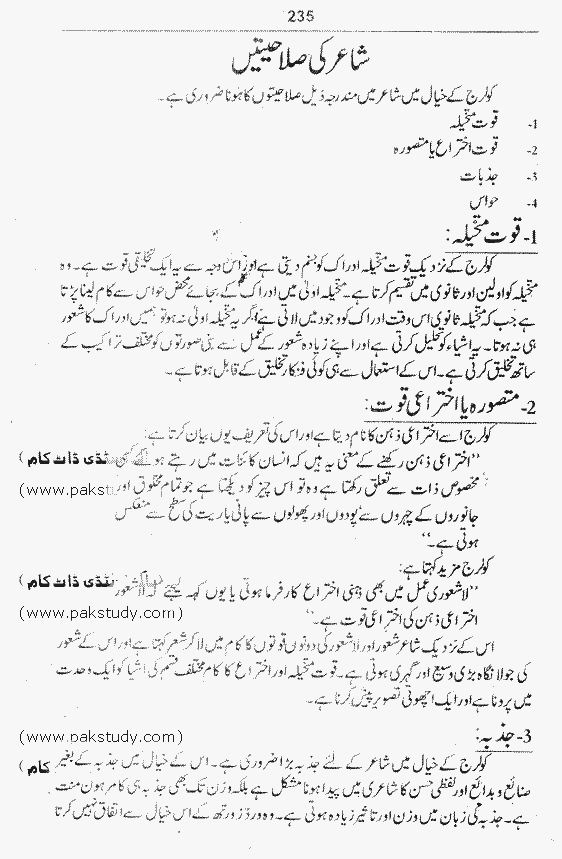 235
شاعر کی صلاحیتیں
کولرج کے خیال میں شاعر میں مندرجہ ذیل صلاحیتوں کا ہونا ضروری ہے۔
1- قوت متخیلہ
2- قوت اختراع یا متصورہ
3- جذبات
4- حواس
1- قوت متخیلہ:
کولرج کے نزدیک قوت متخیلہ ادراک کو جنم دیتی ہے اور اس وجہ سے یہ ایک تخلیقی قوت ہے۔ وہ
متخیلہ کو اولین اور ثانوی میں تقسیم کرتا ہے۔ متخیلہ اولیٰ میں ادراک کے بجائے محض حواس سے کام لینا پڑتا
ہے جب کہ متخیلہ ثانوی اس وقت ادراک کو وجود میں لاتی ہے اگر یہ متخیلہ اولیٰ نہ ہو تو ہمیں ادراک کا شعور
ہی نہ ہوتا۔ یہ اشیاء کو تحلیل کرتی ہے اور اپنے زیادہ شعور کے عمل سے نئی صورتوں کو مختلف تراکیب کے
ساتھ تخلیق کرتی ہے۔ اس کے استعمال سے ہی کوئی فنکار تخلیق کے قابل ہوتا ہے۔
2- متصورہ یا اختراعی قوت:
کولرج اسے اختراعی ذہن کا نام دیتا ہے اور اس کی تعریف یوں بیان کرتا ہے:
"اختراعی ذہن رکھنے کے معنی یہ ہیں کہ انسان کائنات میں رہتے ہوئے کسی سٹڈی ڈاٹ کام )
مخصوص ذات سے تعلق رکھتا ہے وہ تو اس چیز کو دیکھتا ہے جو تمام مخلوق اور (www.pakstudy.com)
جانوروں کے چہروں سے پودوں اور پھولوں سے پانی یا ریت کی سطح سے منعکس
ہوتی ہے۔"
کولرج مزید کہتا ہے:
"لاشعوری عمل میں بھی ذہنی اختراع کارفرما ہوتی یا یوں کہہ لیجئے کہ لاشعور سٹڈی ڈاٹ کام )
اختراعی ذہن کی اختراعی قوت ہے۔" (www.pakstudy.com)
اس کے نزدیک شاعر شعور اور لاشعور کی دونوں قوتوں کا کام میں لا کر شعر کہتا ہے اور اس کے شعور
کی جولا نگاہ بڑی وسیع اور گہری ہوتی ہے۔ قوت متخیلہ اور اختراع کا کام مختلف قسم کی اشیا کو ایک وحدت
میں پرونا ہے اور ایک اچھوتی تصویر پیش کرنا ہے۔
3- جذبہ: (www.pakstudy.com)
کولرج کے خیال میں شاعر کے لئے جذبہ بڑا ضروری ہے۔ اس کے خیال میں جذبہ کے بغیر کام )
صنائع و بدائع اور لفظی حسن کا شاعری میں پیدا ہونا مشکل ہے بلکہ وزن تک بھی جذبہ ہی کا مرہون منت
ہے۔ جذبہ کی زبان میں وزن اور تاثیر زیادہ ہوتی ہے۔ وہ ورڈزورتھ کے اس خیال سے اتفاق نہیں کرتا